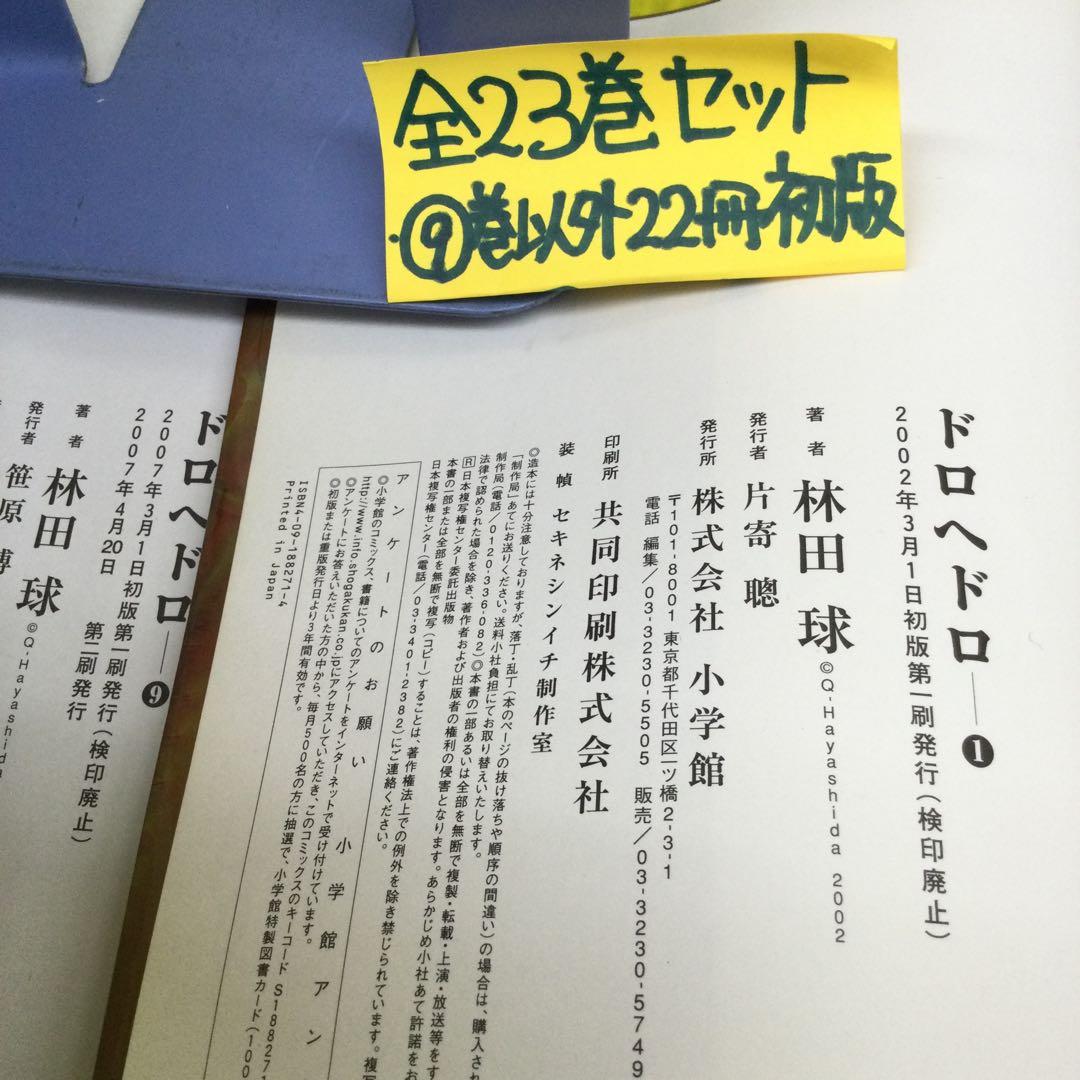 全23巻セット
⑨巻以外22冊初版
ドロヘドロ――❶
2002年3月1日初版第一刷発行(検印廃止)
著者 林田 球 ©Q-Hayashida 2002
発行者 片寄 聰
発行所 株式会社 小学館
〒101-8001 東京都千代田区一ツ橋2-3-1
電話 編集/03-3230-5505 販売/03-3230-5749
印刷所 共同印刷株式会社
装幀 セキネシンイチ制作室
◎造本には十分注意しておりますが、落丁・乱丁(本のページの抜け落ちや順序の間違い)の場合は、購入され
「制作局」あてにお送りください。送料小社負担にてお取り替えいたします。
制作局(電話/0120-336-082)◎本書の一部あるいは全部を無断で複製・転載・上演・放送等をす
法律で認められた場合を除き、著作者および出版者の権利の侵害となります。あらかじめ小社あて許諾をお
R日本複写権センター委託出版物
本書の一部または全部を無断で複写(コピー)することは、著作権法上での例外を除き禁じられています。複写
日本複写権センター(電話/03-3401-2382)にご連絡ください。
アンケートのお願い 小学館アン
◎小学館のコミックス、書籍についてのアンケートをインターネットで受け付けています。
http://www.info.shogakukan.co.jpにアクセスしていただき、このコミックスのキーコード S18827
◎アンケートにお答えいただいた方の中から、毎月500名の方に抽選で、小学館特製図書カード(100
◎初版または重版発行日より3年間有効です。
ISBN4-09-188271-4
Printed in Japan
ドロヘドロ――❾
2007年3月1日初版第一刷発行(検印廃止)
2007年4月20日 第二刷発行
著者 林田 球 ©Q-Hayashida
発行者 笹原 博